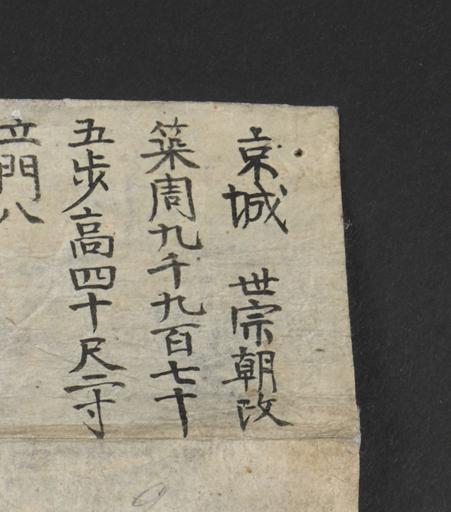 京城 世宗朝改
築周九千九百七十
五步高四十尺二寸
立門八